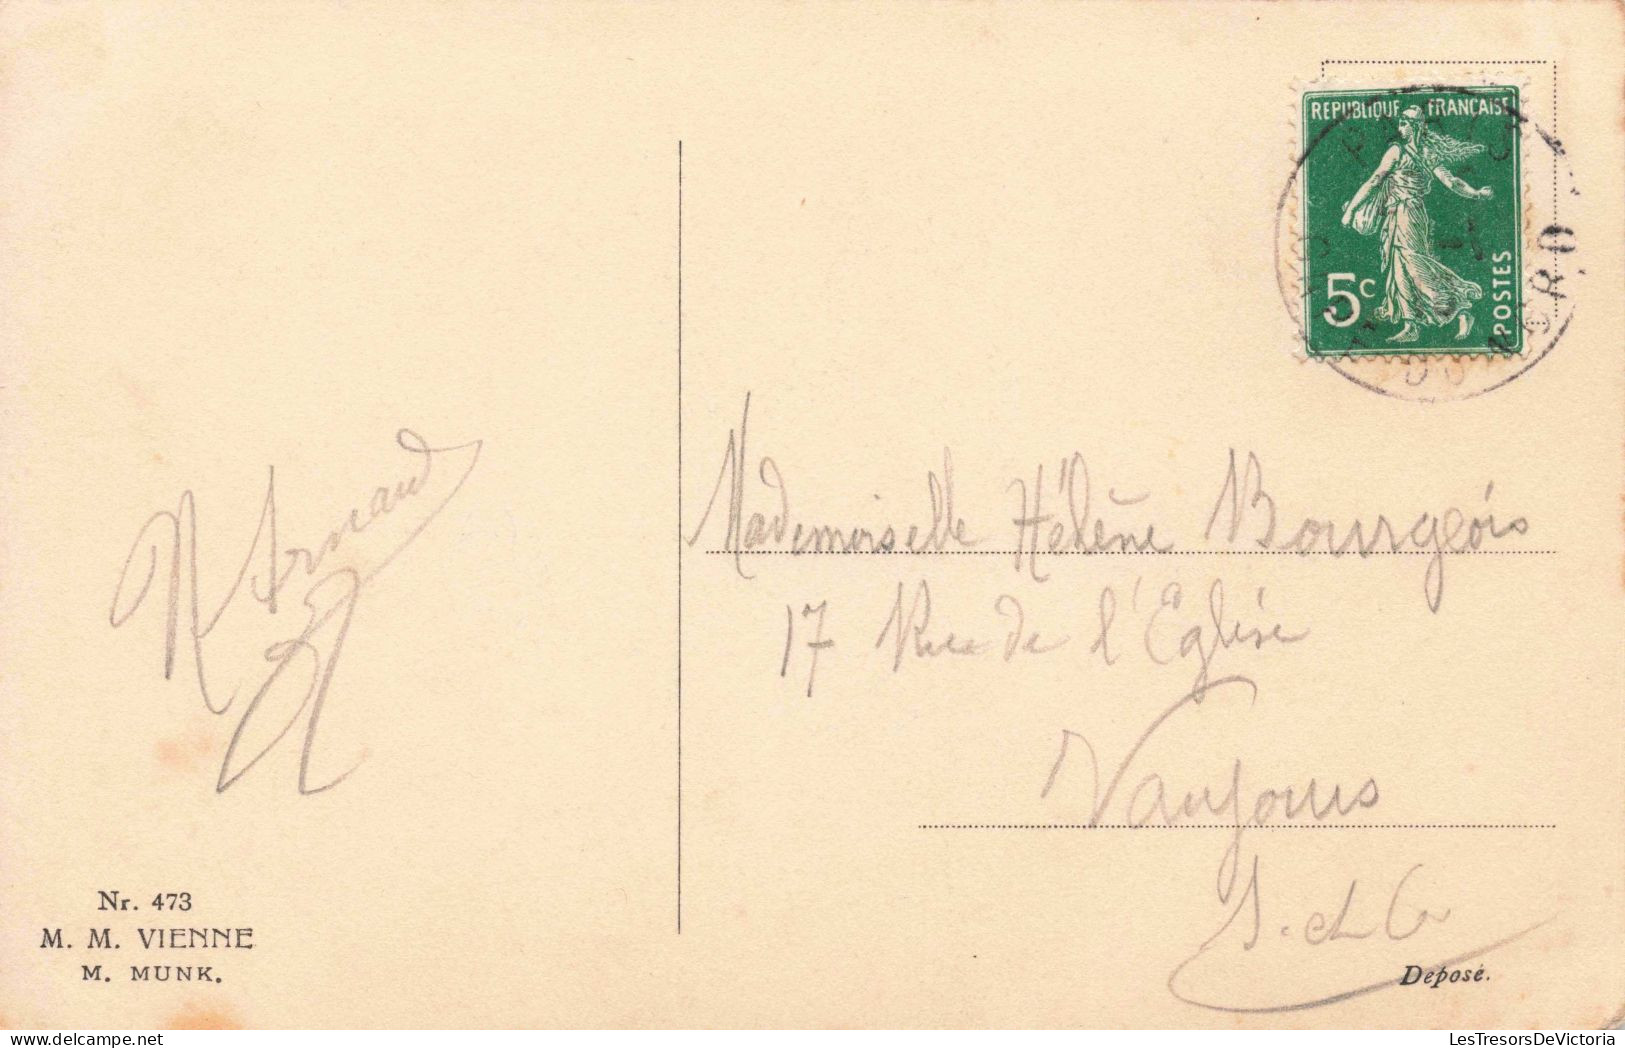 REPUBLIQUE FRANÇAISE
5c
POSTES
R Arnaud
Mademoiselle Hélène Bourgeois
17 Rue de l'Eglise
Vaujours
S. et O
Nr. 473
M. M. VIENNE
M. MUNK.
Deposé.
LesTresorsDeVictoria